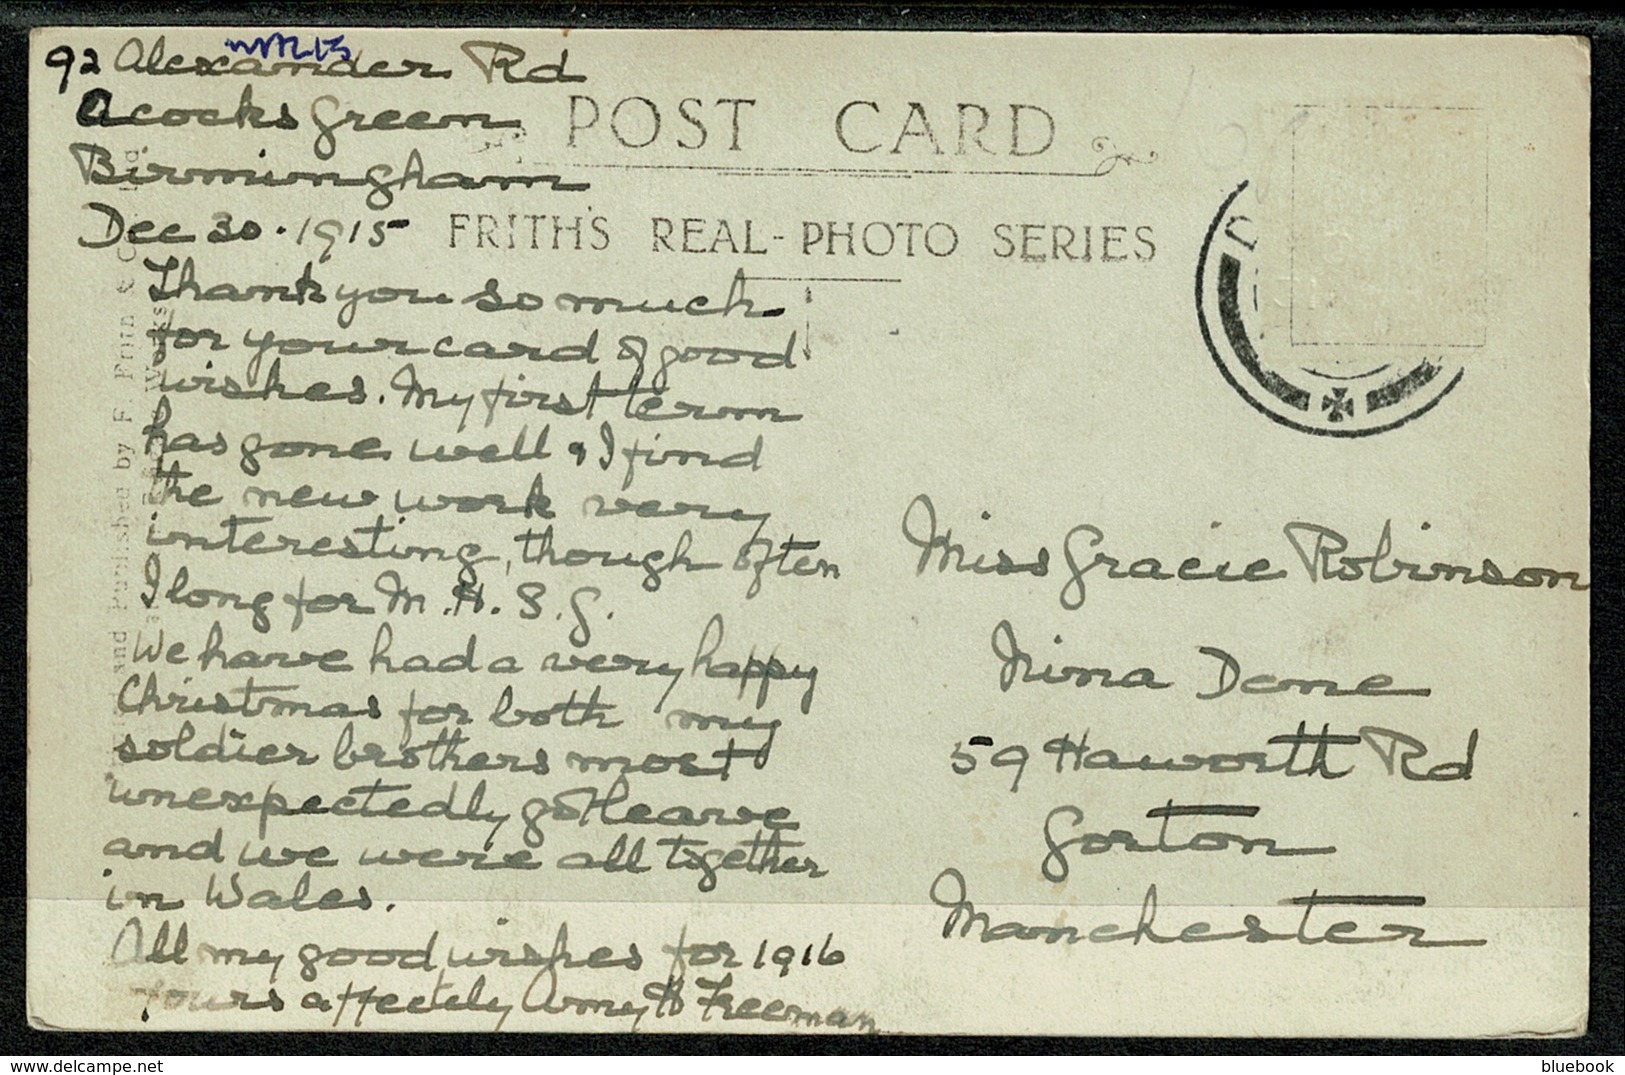 92 Alexander Rd
Acocks Green
Birmingham
Dec 30. 1915
POST CARD
FRITH'S REAL-PHOTO SERIES
Thank you so much
for your card of good
wishes. My first term
has gone well & I find
the new work very
interesting, though often
I long for M.H.S.G.
We have had a very happy
Christmas for both my
soldier brothers most
unexpectedly got leave
and we were all together
in Wales.
All my good wishes for 1916
Yours affectely Amy H Freeman
Miss Gracie Robinson
Nina Dene
59 Haworth Rd
Gorton
Manchester
Published by F. Frith & Co
delcampe.net
bluebook